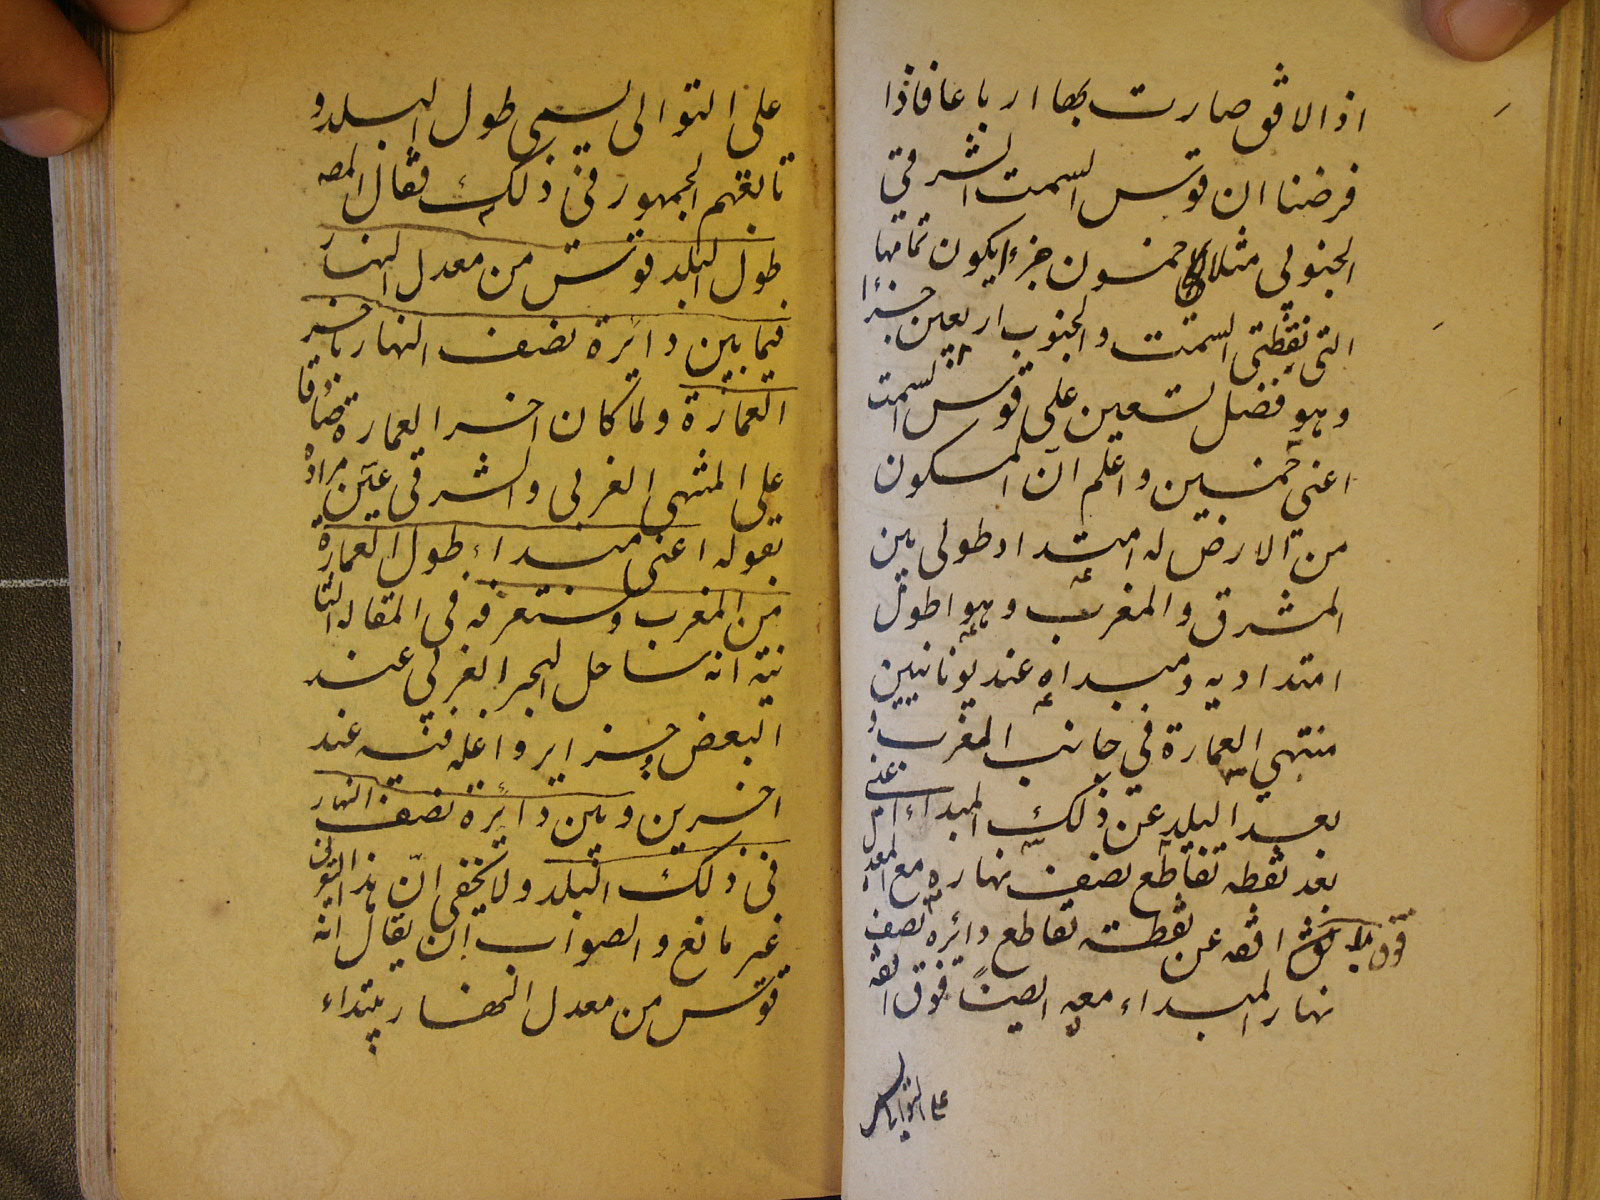 اذ الافق صارت بهما ارباعا فاذا
فرضنا ان قوس السمت الشرقي
الجنوبي مثلا خمسون جزءا يكون تمامها
التي نقطتي السمت والجنوب اربعين جزءا
وهو فضل تسعين على قوس السمت
اعني خمسين واعلم ان المسكون
من الارض له امتداد طولي بين
المشرق والمغرب وهو اطول
امتداديه ومبداه عند يونانيين
منتهي العمارة في جانب المغرب و
بعد البلد عن ذلك المبداء اعني
بعد نقطه تقاطع نصف نهاره مع المعدل
فوق افقه عن نقطته تقاطع دائرة نصف
نهار المبداء معه ايضا فوق افقه
على التوالي
على التوالي يسمى طول البلد و
تابعهم الجمهور في ذلك فقال المصـ
طول البلد قوس من معدل النهار
فيما بين دائرة نصف النهار باخر
العمارة ولما كان اخر العمارة صادقا
على المنتهى الغربي والشرقي عين مراده
بقوله اعني مبتداء طول العمارة
من المغرب وستعرفه في المقاله الثا
نية انه ساحل البحر الغربي عند
البعض وجزاير واغله فيه عند
اخرين وبين دائرة نصف النهار
في ذلك البلد ولا يخفى ان هذا التعريف
غير مانع والصواب ان يقال انه
قوس من معدل النهار يبتداء